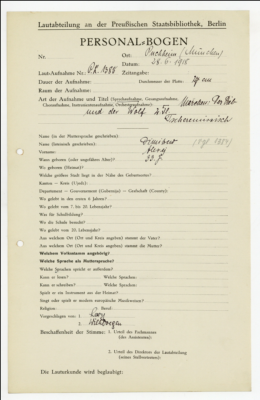 Lautabteilung an der Preußischen Staatsbibliothek, Berlin
PERSONAL-BOGEN
Nr. Ort: Puchheim (München)
Datum: 28.6.1918
Laut-Aufnahme Nr.: PK 1388 Zeitangabe:
Dauer der Aufnahme: Durchmesser der Platte: 27 cm
Raum der Aufnahme:
Art der Aufnahme und Titel (Sprechaufnahme, Gesangsaufnahme,
und der Wolf
Tscheremissisch
Name (in der Muttersprache geschrieben):
Name (lateinisch geschrieben):
Vorname:
Wann geboren (oder ungefähres Alter)? 33 J.
Wo geboren (Heimat)?
Welche größere Stadt liegt in der Nähe des Geburtsortes?
Kanton — Kreis (Ujezd):
Department — Gouvernement (Gubernija) — Grafschaft (County):
Wo gelebt in den ersten 6 Jahren?
Wo gelebt vom 7. bis 20. Lebensjahr?
Was für Schulbildung?
Wo die Schule besucht?
Wo gelebt vom 20. Lebensjahr?
Aus welchem Ort (Ort und Kreis angeben) stammt der Vater?
Aus welchem Ort (Ort und Kreis angeben) stammt die Mutter?
Welchem Volksstamm angehörig?
Welche Sprache als Muttersprache?
Welche Sprachen spricht er außerdem?
Kann er lesen? Welche Sprachen?
Kann er schreiben? Welche Sprachen?
Spielt er ein Instrument aus der Heimat?
Singt oder spielt er moderne europäische Musikweisen?
Religion: Beruf:
Vorgeschlagen von: 1.
2.
Beschaffenheit der Stimme: 1. Urteil des Fachmannes
(des Assistenten):
2. Urteil des Direktors der Lautabteilung
(seines Stellvertreters):
Die Lauturkunde wird beglaubigt: